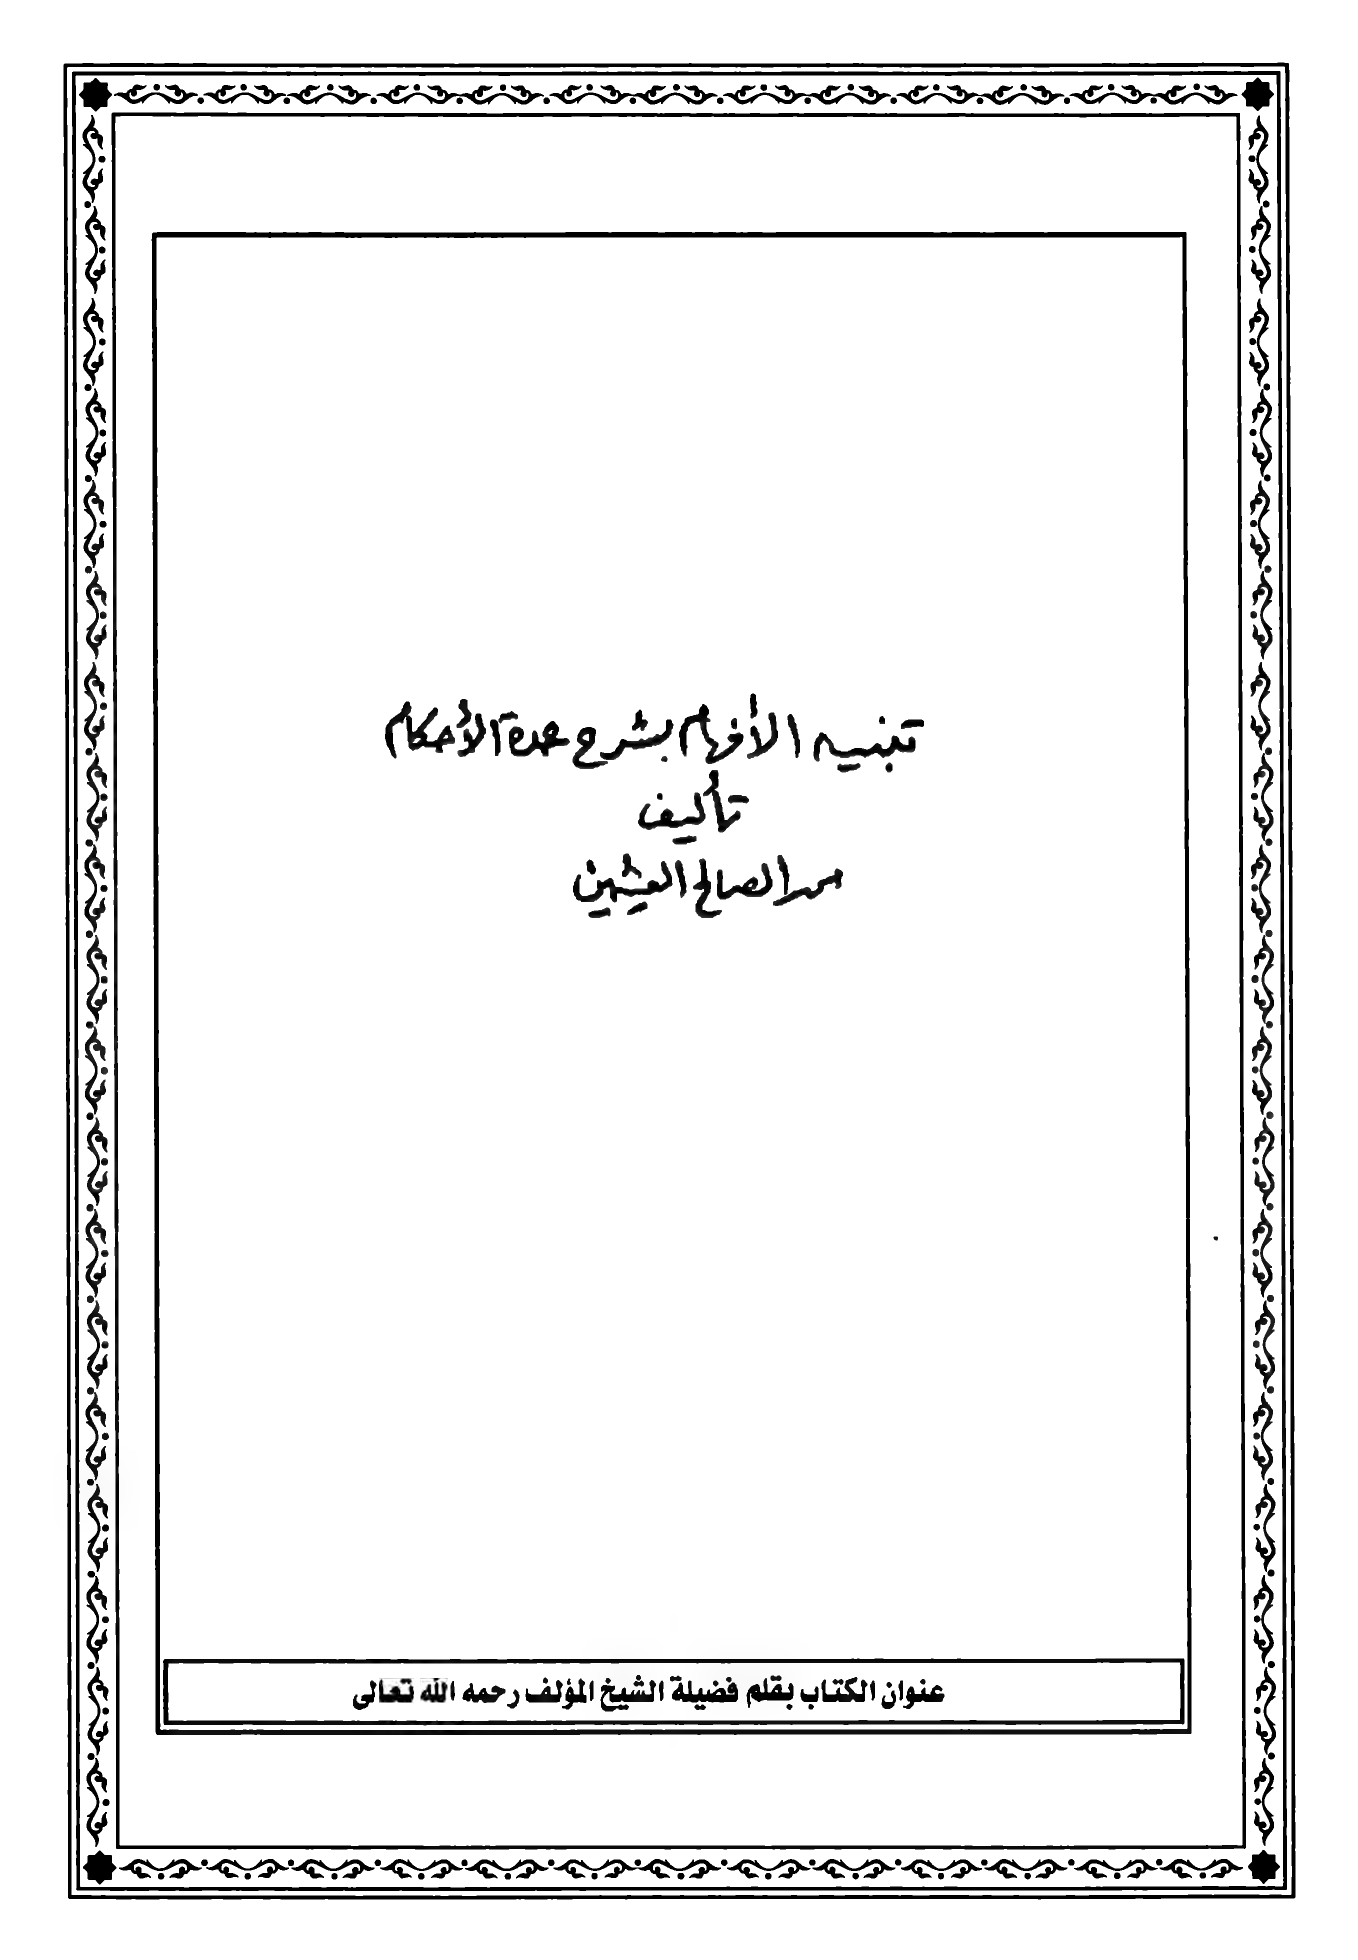 تنبيه الأفهام بشرح عمدة الأحكام
تأليف
محمد الصالح العثيمين
عنوان الكتاب بقلم فضيلة الشيخ المؤلف رحمه الله تعالى